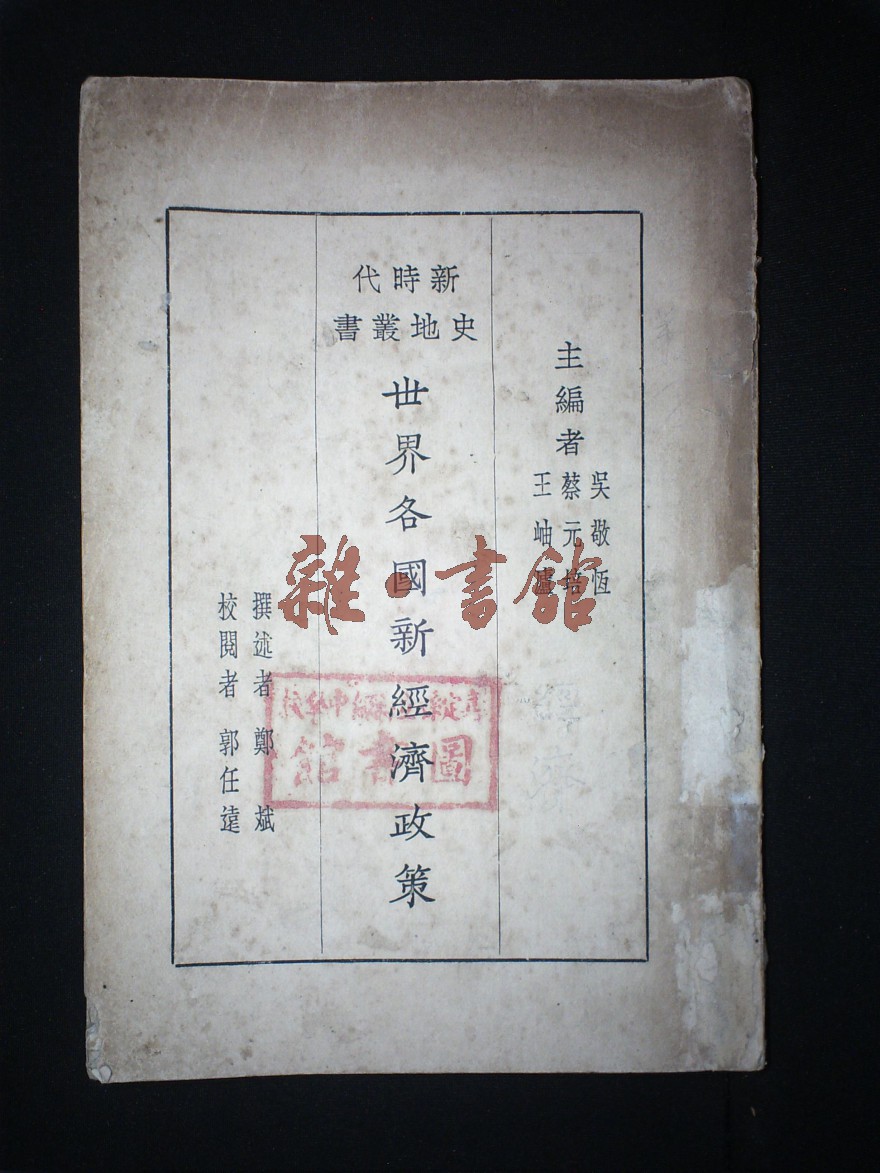 主編者
吳敬恆
蔡元培
王岫廬
新時代
史地叢書
世界各國新經濟政策
撰述者 鄭斌
校閱者 郭任遠
雜·書館
圖書館